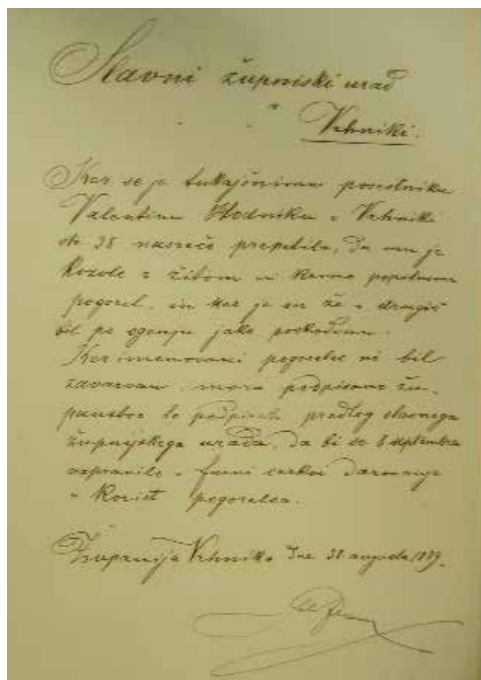 Slavni župnijski urad
v
Vrhniki.
Ker se je tukajšnjemu posestniku
Valentinu Hodniku v Vrhniki
št. 38 nesreča pripetila, da mu je
kozolec z žitom in krmo popolnoma
pogorel, in ker je on že v drugič
bil po ognju jako poškodovan.
Ker imenovani pogorelec ni bil
zavarovan, mora podpisano žu-
panstvo le podpirati predlog slavnega
župnijskega urada, da bi se 8 septembra
napravilo v farni cerkvi darovanje
v korist pogorelca.
Županija Vrhnika dne 31 avgusta 1889.